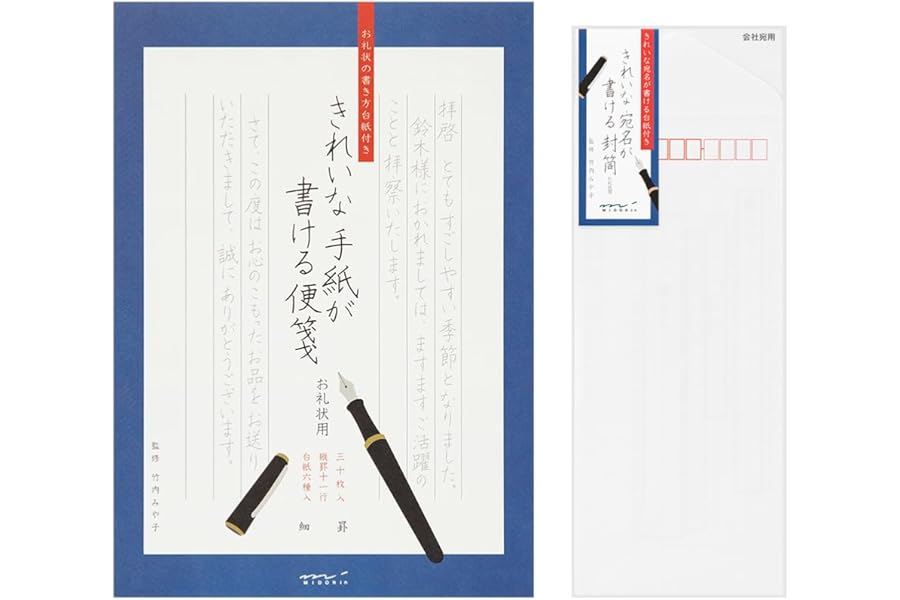 お礼状の書き方台紙付き
きれいな手紙が
書ける便箋
お礼状用
三十枚入
縦罫十一行
台紙六種入
細 罫
拝啓 とてもすごしやすい季節となりました。
鈴木様におかれましては、ますますご活躍の
ことと拝察いたします。
さて、この度はお心のこもったお品をお送り
いただきまして、誠にありがとうございます。
監修 竹内みや子
MIDORI
会社宛用
きれいな宛名が書ける台紙付き
きれいな宛名が
書ける封筒
監修 竹内みや子
MIDORI